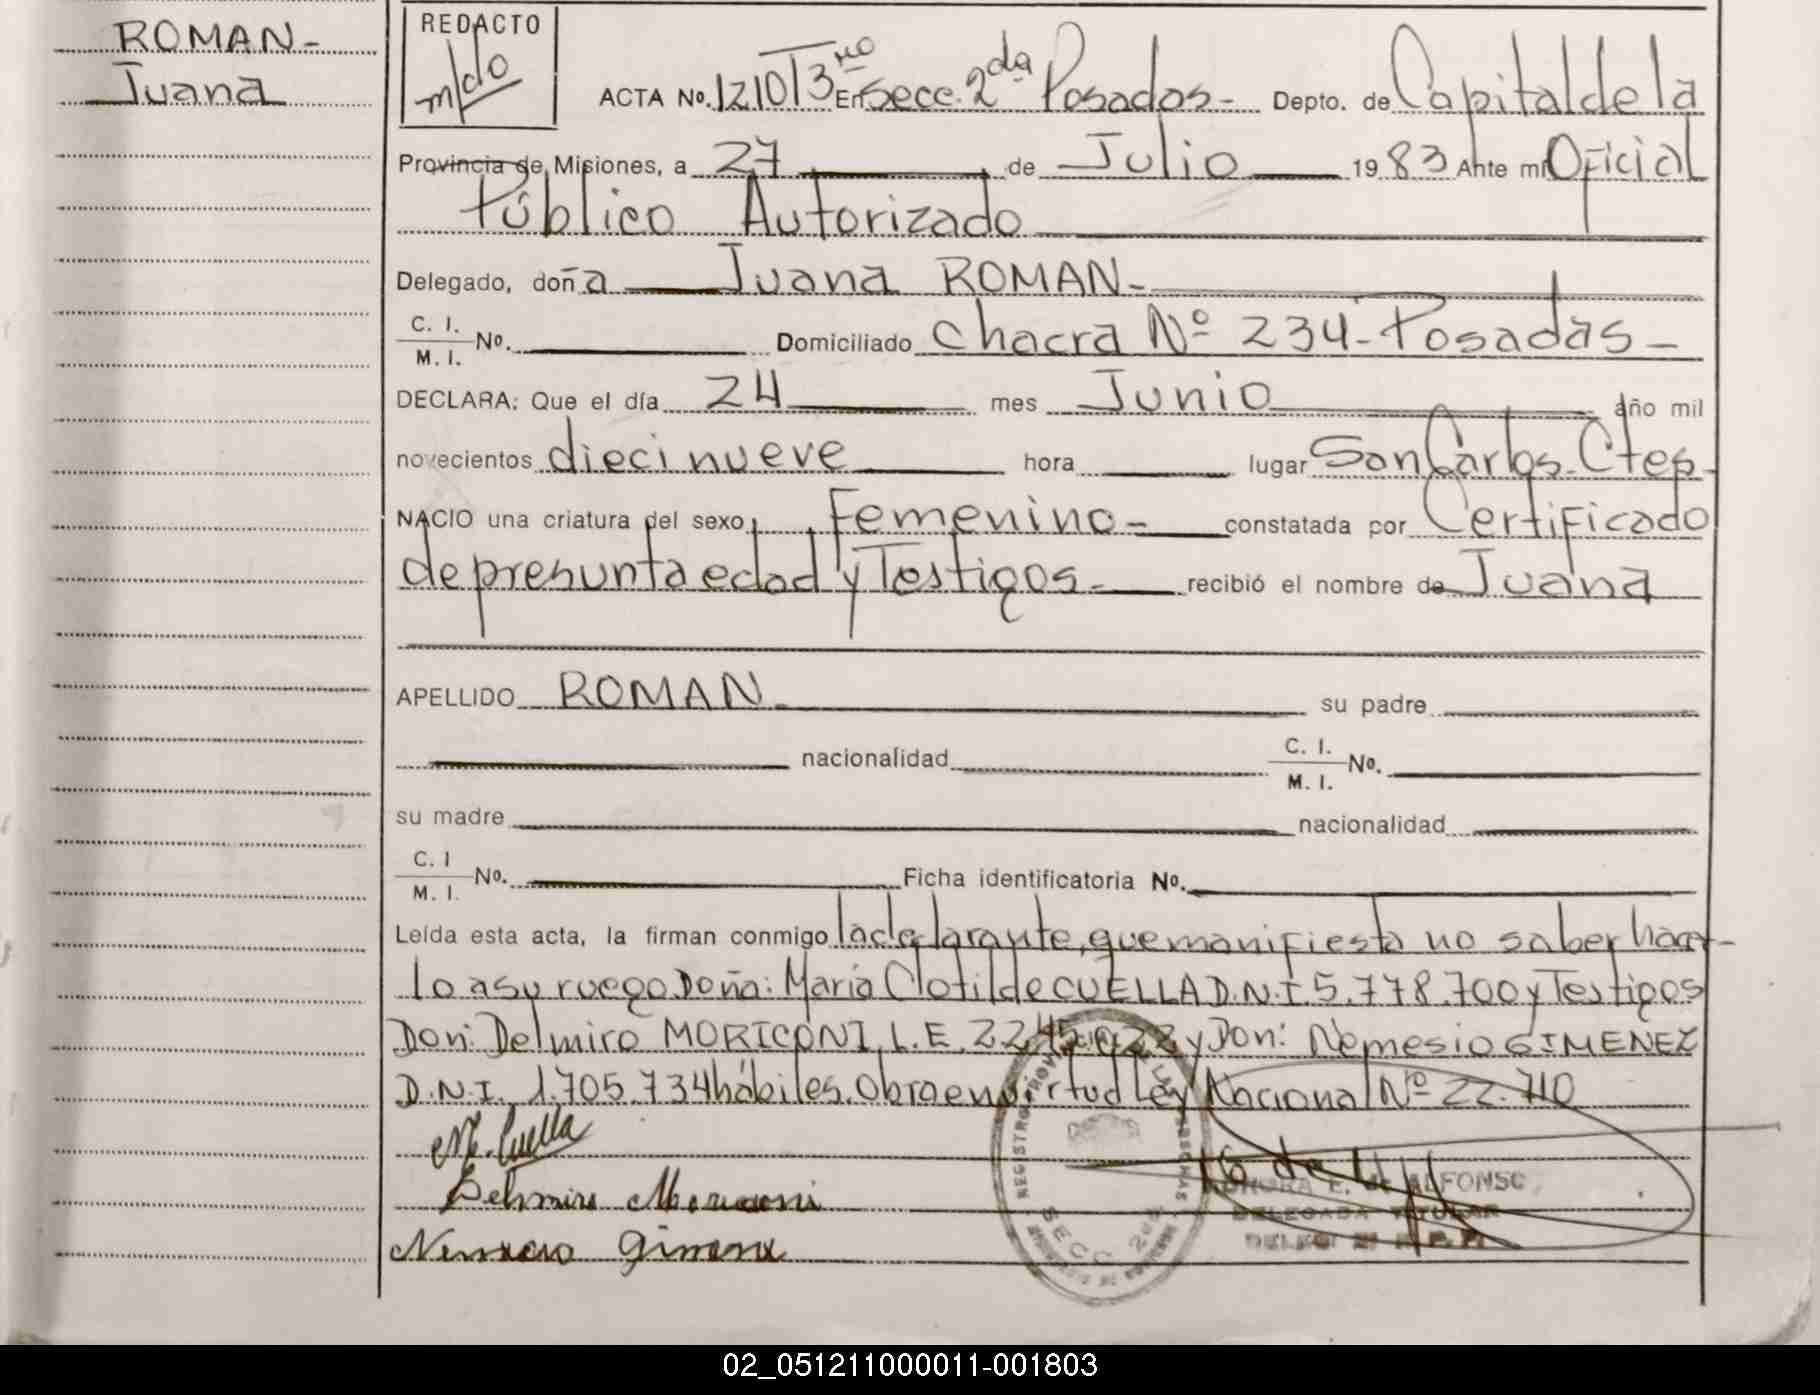 ROMAN-
Juana
REDACTO
m/do
ACTA No. 1210 T3ro En Secc. 2da Posadas- Depto. de Capital de la
Provincia de Misiones, a 27 de Julio 1983 Ante mi Oficial
Público Autorizado
Delegado, doña Juana ROMAN-
C. I.
M. I. No. Domiciliado chacra Nº 234-Posadas-
DECLARA: Que el día 24 mes Junio año mil
novecientos dieci nueve hora lugar San Carlos-Ctes-
NACIO una criatura del sexo Femenino- constatada por Certificado
de presunta edad y Testigos- recibió el nombre de Juana
APELLIDO ROMAN- su padre
nacionalidad C. I.
M. I. No.
su madre nacionalidad
C. I
M. I. No. Ficha identificatoria No.
Leída esta acta, la firman conmigo la declarante, que manifiesta no saber hacer-
lo a su ruego Doña: María Clotilde CUELLA D.N.I 5.778.700 y Testigos
Don: Delmiro MORICONI, L.E. y Don: Nemesio GIMENEZ
D.N.I. 1.705.734 hábiles. Obra en virtud Ley Nacional Nº 22.710
M. Cuella
Delmiro Moriconi
Nemesio Gimenez
REGISTRO PROV. DE LAS PERSONAS
SECC. 2da
E. de ALFONSO
DELEGADA TITULAR
02_051211000011-001803